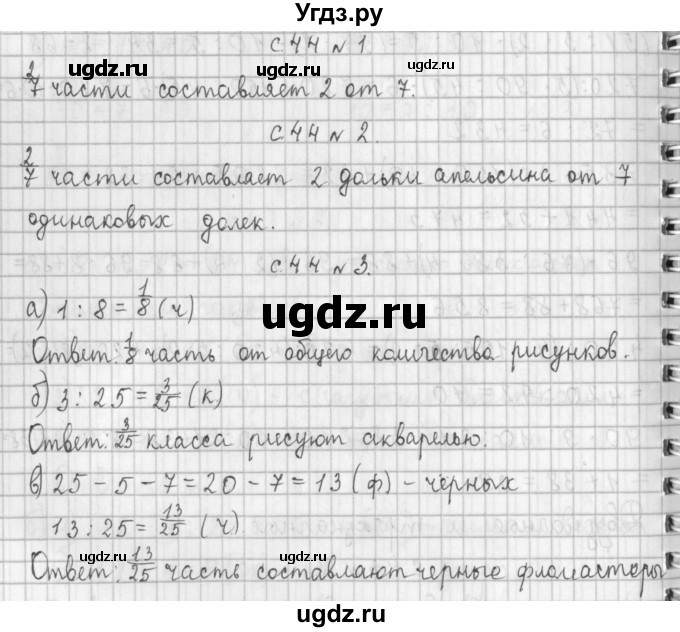 Угдз.ру
с.44 № 1.
2/7 части составляет 2 от 7.
с.44 № 2.
2/7 части составлает 2 дольки апельсина от 7
одинаковых долек.
с.44 № 3.
а) 1 : 8 = 1/8 (ч)
Ответ: 1/8 часть от общего количества рисунков.
б) 3 : 25 = 3/25 (к)
Ответ: 3/25 класса рисуют акварелью.
в) 25 - 5 - 7 = 20 - 7 = 13 (ф) - черных
13 : 25 = 13/25 (ч).
Ответ: 13/25 часть составляют черные фломастеры
ugdz.ru
ugdz.ru
ugdz.ru
ugdz.ru
ugdz.ru
ugdz.ru
ugdz.ru
ugdz.ru